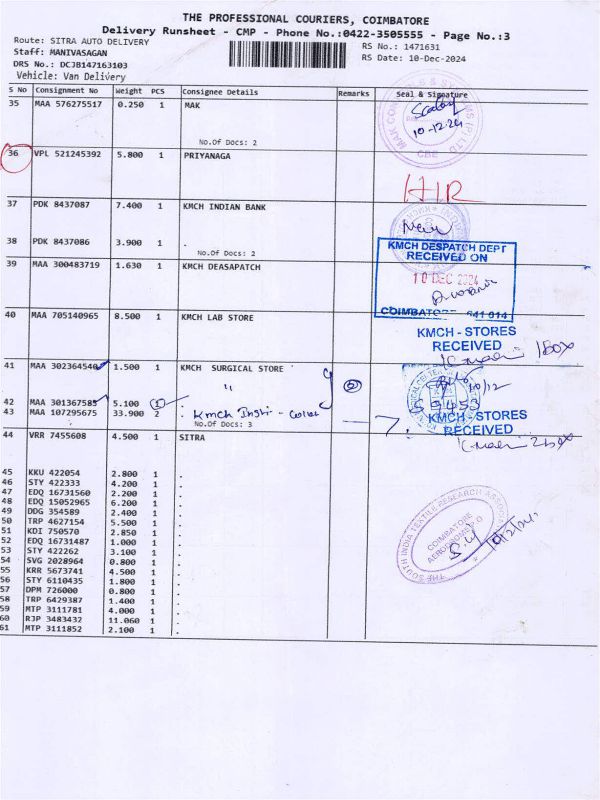 THE PROFESSIONAL COURIERS, COIMBATORE
Delivery Runsheet - CMP - Phone No.:0422-3505555 - Page No.:3
Route: SITRA AUTO DELIVERY
RS No.: 1471631
Staff: MANIVASAGAN
RS Date: 10-Dec-2024
DRS No.: DCJB147163103
Vehicle: Van Delivery
S No Consignment No Weight PCS Consignee Details Remarks Seal & Signature
35 MAA 576275517 0.250 1 MAK
10-12-24
CBE
No.Of Docs: 2
36 VPL 521245392 5.800 1 PRIYANAGA
37 PDK 8437087 7.400 1 KMCH INDIAN BANK
38 PDK 8437086 3.900 1 .
No.Of Docs: 2
KMCH DESPATCH DEPT
RECEIVED ON
39 MAA 300483719 1.630 1 KMCH DEASAPATCH
10 DEC 2024
COIMBATORE - 641 014
40 MAA 705140965 8.500 1 KMCH LAB STORE
KMCH - STORES
RECEIVED
1 Box
41 MAA 302364540 1.500 1 KMCH SURGICAL STORE
"
42 MAA 301367585 5.100
43 MAA 107295675 33.900 2 Kmch Insti -
No.Of Docs: 3
KMCH - STORES
RECEIVED
2 box
44 VRR 7455608 4.500 1 SITRA
45 KKU 422054 2.800 1 .
46 STY 422333 4.200 1 .
47 EDQ 16731560 2.200 1 .
48 EDQ 15052965 6.200 1 .
49 DDG 354589 2.400 1 .
50 TRP 4627154 5.500 1 .
51 KDI 750570 2.850 1 .
52 EDQ 16731487 1.000 1 .
53 STY 422262 3.100 1 .
54 SVG 2028964 0.800 1 .
55 KRR 5673741 4.500 1 .
56 STY 6110435 1.800 1 .
57 DPM 726000 0.800 1 .
58 TRP 6429387 1.400 1 .
59 MTP 3111781 4.000 1 .
60 RJP 3483432 11.060 1 .
61 MTP 3111852 2.100 1 .
THE SOUTH INDIA TEXTILE RESEARCH ASSOCIATION
COIMBATORE
AERODROME P.O